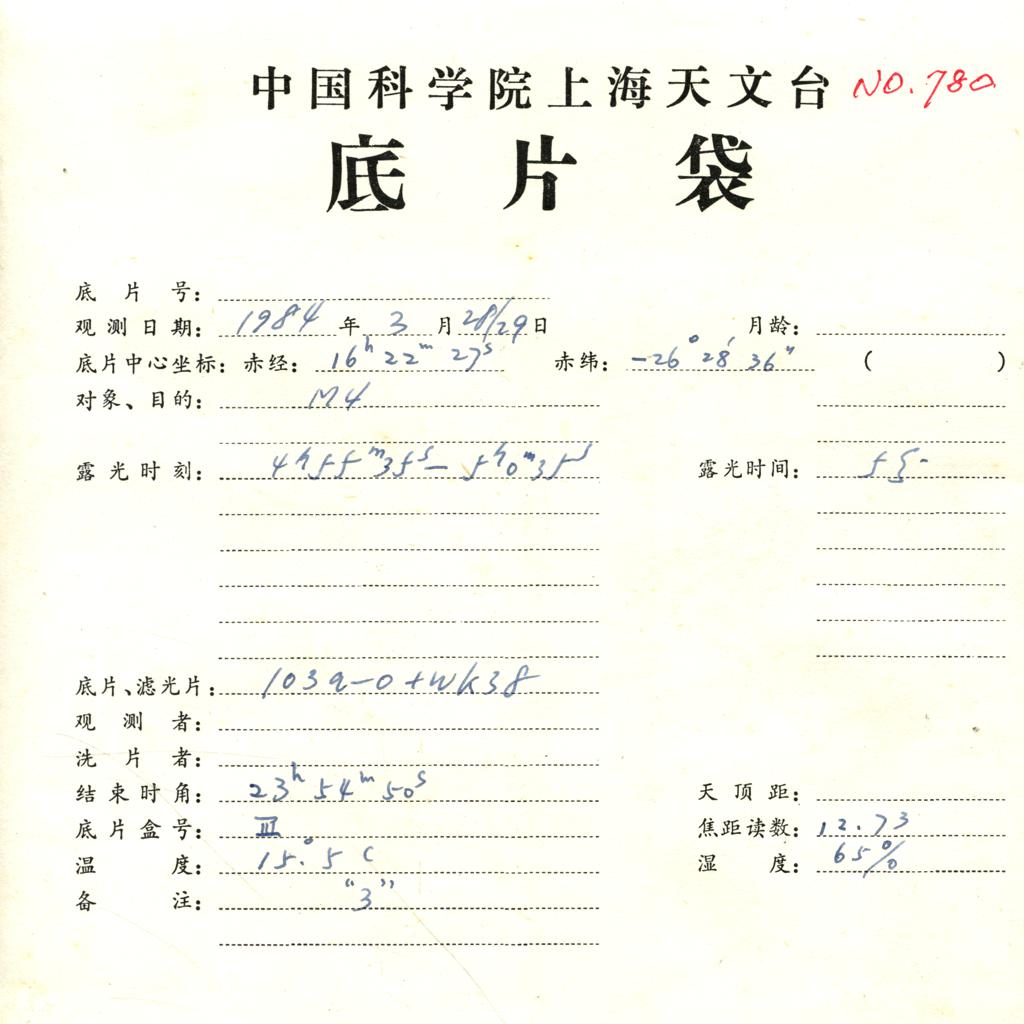 中国科学院上海天文台 NO.780
底片袋
底片号:
观测日期: 1984 年 3 月 28/29 日 月龄:
底片中心坐标: 赤经: 16h 22m 27s 赤纬: -26° 28′ 36″ ( )
对象、目的: M4
露光时刻: 4h55m35s — 5h0m35s 露光时间:
底片、滤光片: 103a-O+WK38
观测者:
洗片者:
结束时角: 23h 54m 50s 天顶距:
底片盒号: III 焦距读数: 12.73
温度: 15.°5 C 湿度: 65%
备注: “3”